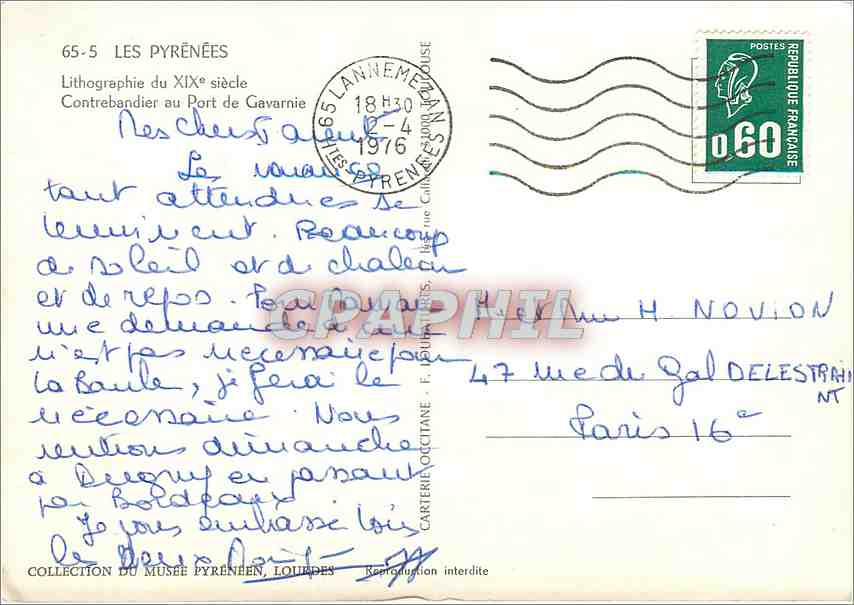 65-5 LES PYRÉNÉES
Lithographie du XIXe siècle
Contrebandier au Port de Gavarnie
65 LANNEMEZAN
18 H30
2-4
1976
HTES PYRENEES
POSTES
REPUBLIQUE FRANÇAISE
0,60
Mes Chers Parents
Les vacances
tant attendues se
terminent. Beaucoup
de soleil et de chaleur
et de repos. Pour Maman
une demande à
n'est pas necessaire pour
La Baule, je ferai le
nécessaire. Nous
rentrons dimanche
à Dugny en passant
par Bordeaux
Je vous embrasse tous
les deux
CPAPHIL
M et Mme H. NOVION
47 rue du Gal DELESTRAI
NT
Paris 16e
CARTERIE OCCITANE - F. LOUBATIÈRES, rue 31000 TOULOUSE
COLLECTION DU MUSÉE PYRÉNÉEN, LOURDES Reproduction interdite